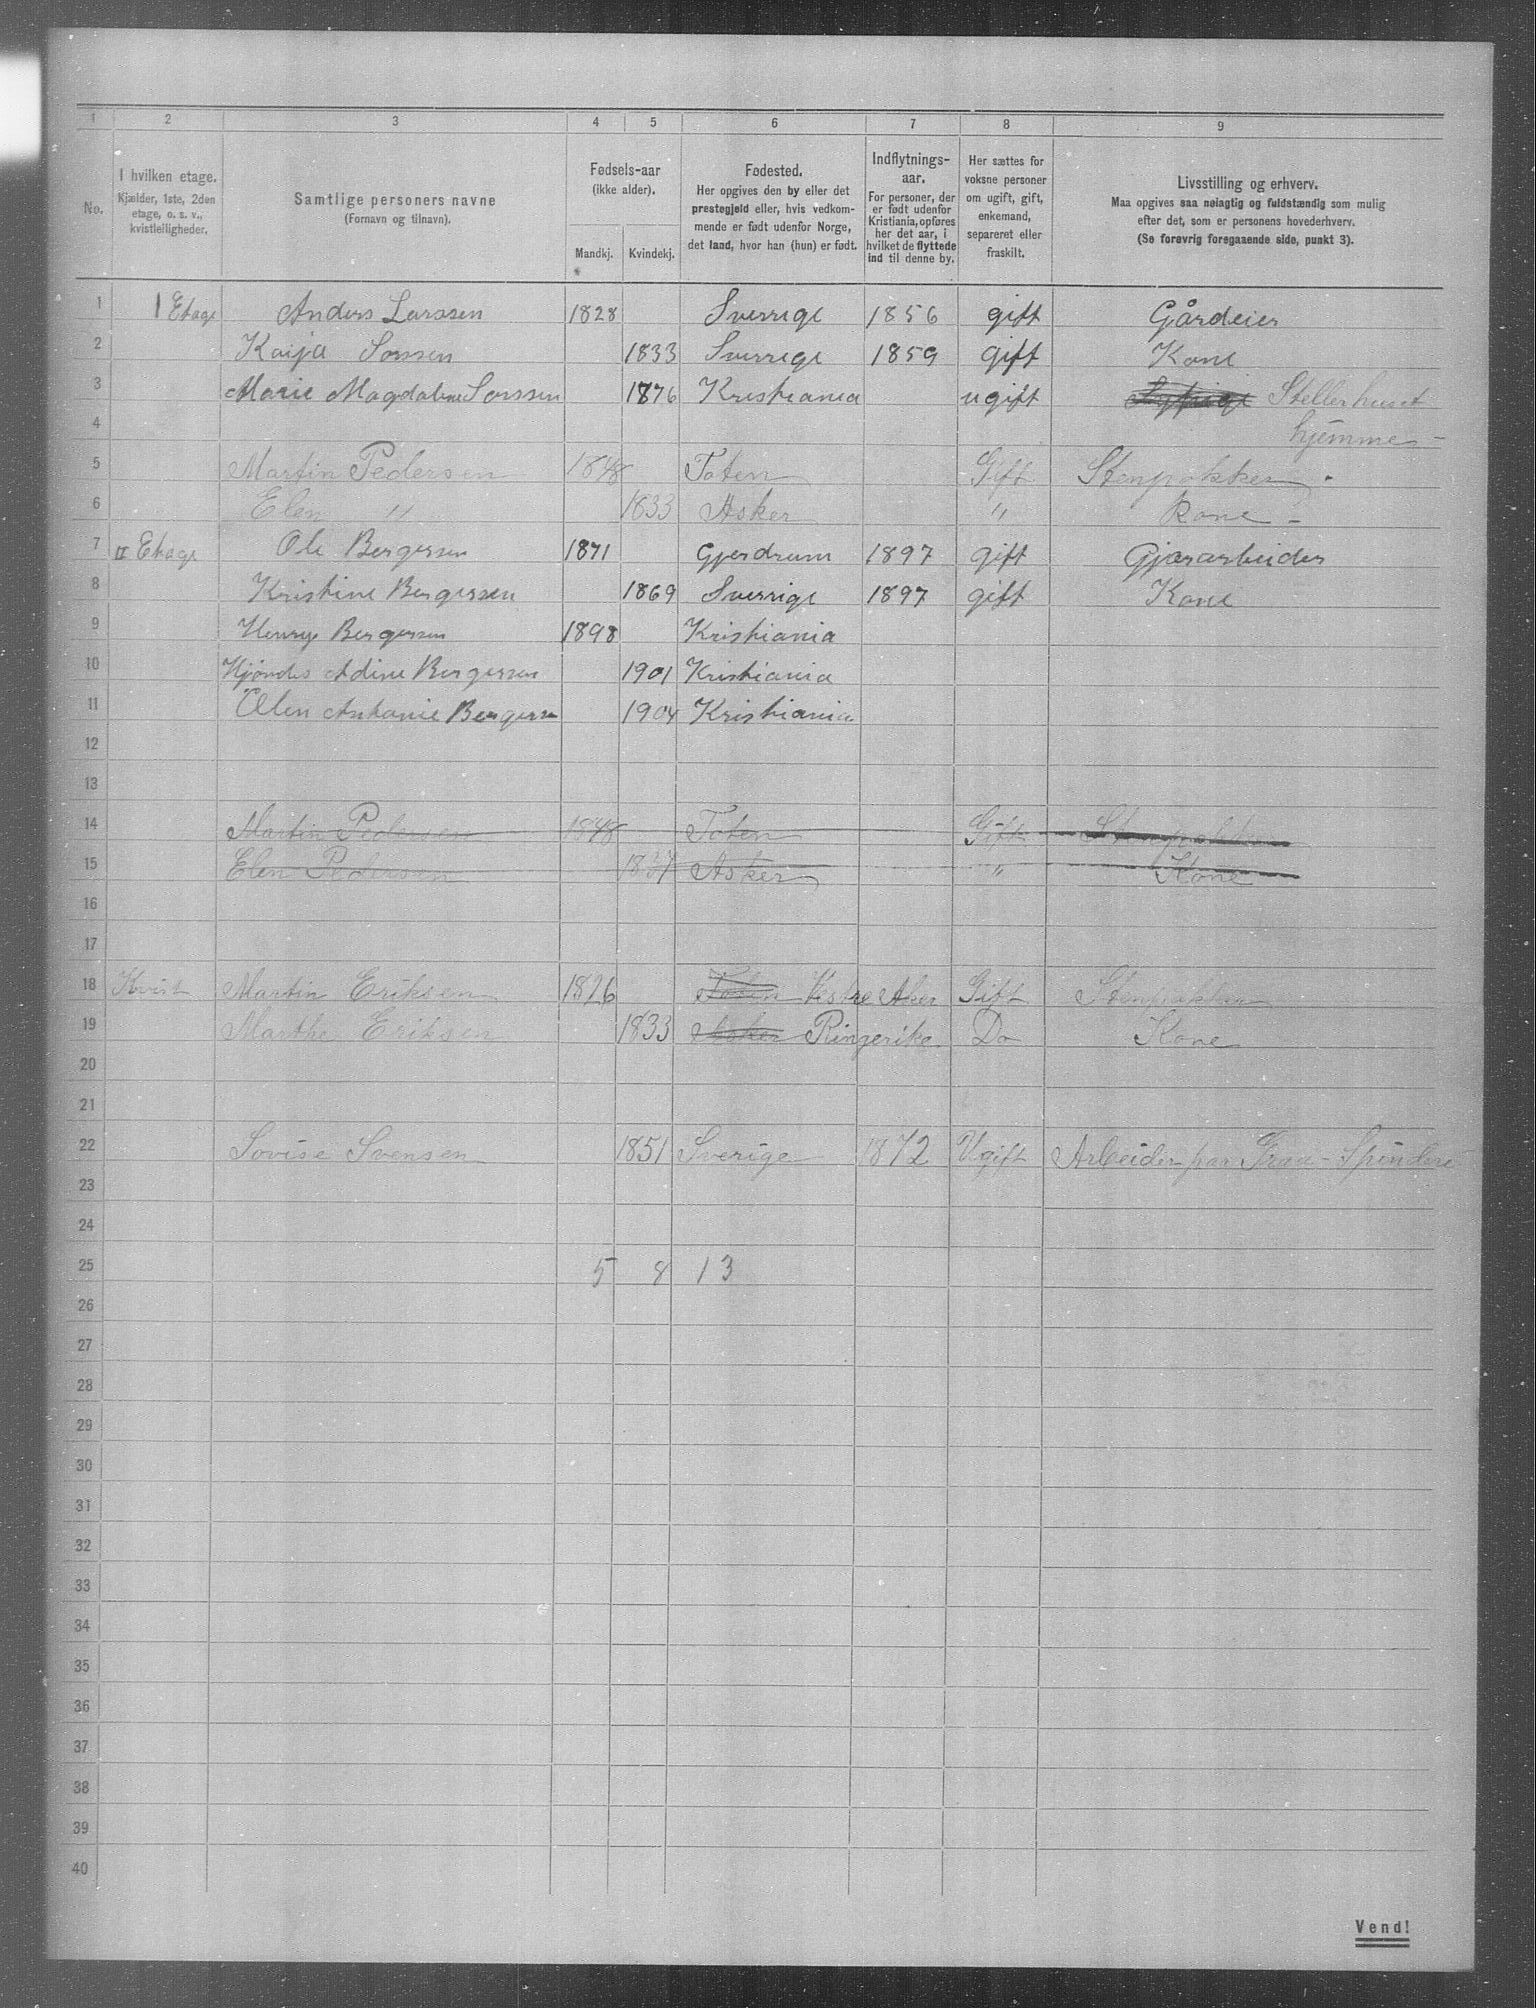 1 2 3 4 5 6 7 8 9
No.
I hvilken etage.
Kjælder, 1ste, 2den
etage, o. s. v.,
kvistleiligheder.
Samtlige personers navne
(Fornavn og tilnavn).
Fødsels-aar
(ikke alder).
Mandkj. Kvindekj.
Fødested.
Her opgives den by eller det
prestegjeld eller, hvis vedkom-
mende er født udenfor Norge,
det land, hvor han (hun) er født.
Indflytnings-
aar.
For personer, der
er født udenfor
Kristiania, opføres
her det aar, i
hvilket de flyttede
ind til denne by.
Her sættes for
voksne personer
om ugift, gift,
enkemand,
separeret eller
fraskilt.
Livsstilling og erhverv.
Maa opgives saa nøiagtig og fuldstændig som mulig
efter det, som er personens hovederhverv.
(Se forøvrig foregaaende side, punkt 3).
1 I Etage Anders Larssen 1828 Sverrige 1856 gift Gårdeier
2 Kaija Larssen 1833 Sverrige 1859 gift Kone
3 Marie Magdalene Larssen 1876 Kristiania ugift Steller huset
4 hjemme
5 Martin Pedersen 1848 Toten Gift Stenpukker
6 Elen " 1833 Asker " Kone
7 II Etage Ole Bergersen 1871 Gjerdrum 1897 gift Gjærarbeider
8 Kristine Bergersen 1869 Sverrige 1897 gift Kone
9 Henry Bergersen 1898 Kristiania
10 Hjørdis Adine Bergersen 1901 Kristiania
11 Antonie Bergersen 1904 Kristiania
12
13
14 Martin Pedersen 1848 Toten Gift Stenpukker
15 Elen Pedersen Asker " Kone
16
17
18 Kvist Martin Eriksen 1826 Toten Vestre Aker Gift Stenpukker
19 Marthe Eriksen 1833 Asker Ringerike Do Kone
20
21
22 Lovise Svensen 1851 Sverige 1872 Ugift Arbeider paa Graa-Spinderi
23
24
25 5 8 13
26
27
28
29
30
31
32
33
34
35
36
37
38
39
40
Vend!